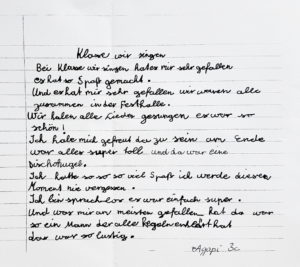 Klasse wir singen
Bei Klasse wir singen hat es mir sehr gefallen
es hat so Spaß gemacht.
Und er hat mir sehr gefallen wir waren alle
zusammen in der Festhalle.
Wir haben alle Lieder gesungen es war so
schön!
Ich habe mich gefreut da zu sein am Ende
war alles super toll und da war eine
Dischokugel.
Ich hatte so so so viel Spaß ich werde diesen
Moment nie vergessen.
Ich bin sprachlos es war einfach super.
Und was mir am meisten gefallen hat da war
so ein Mann der alle Regeln erklärt hat
das war so lustig.
Agapi 3c